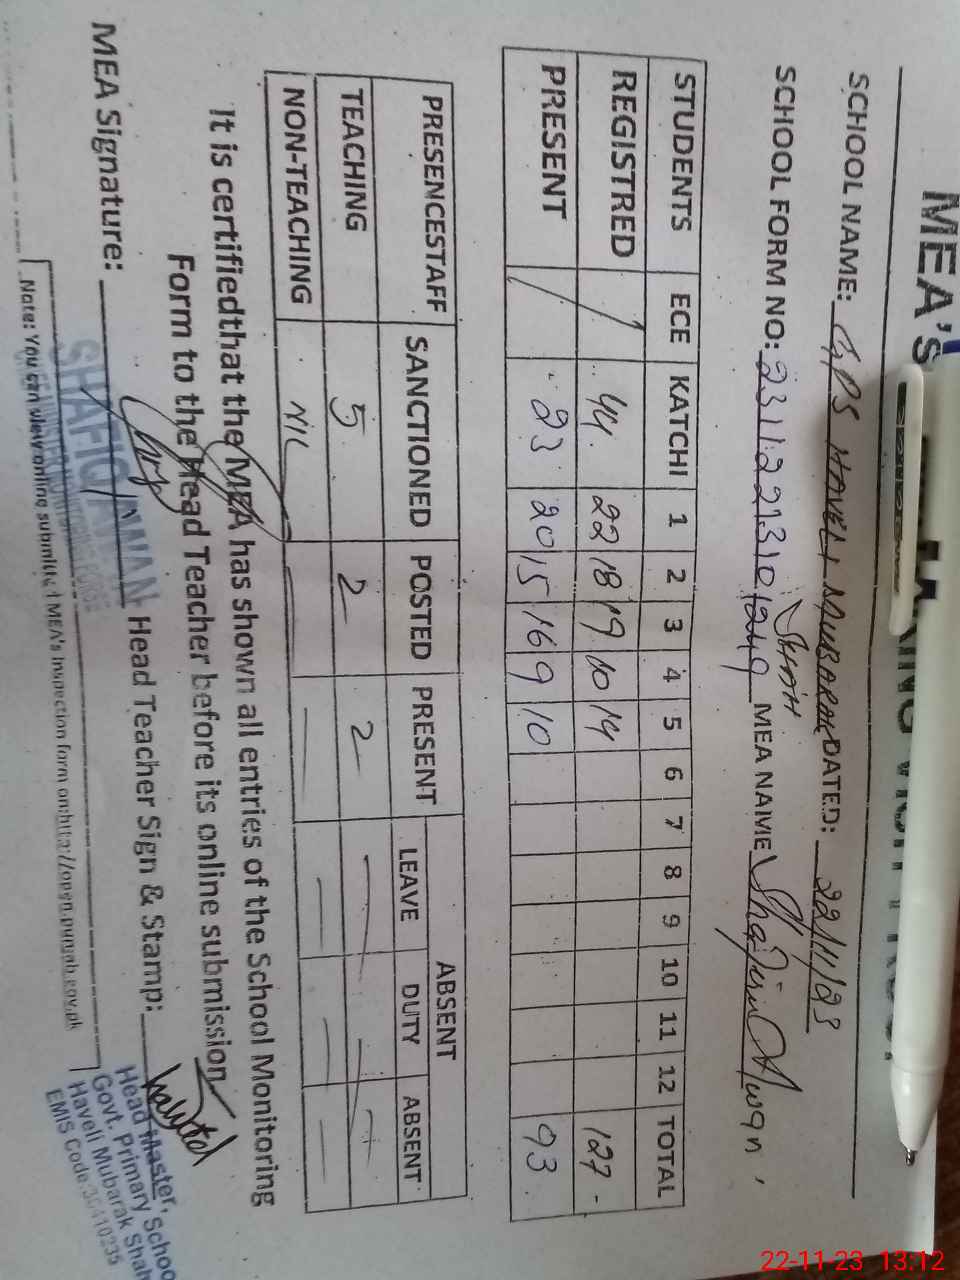 MEA'S
SCHOOL NAME: GPS HAVELI MUBARAK DATED: 22/11/23
SHAH
SCHOOL FORM NO: MEA NAME
STUDENTS ECE KATCHI 1 2 3 4 5 6 7 8 9 10 11 12 TOTAL
REGISTRED 44 22 18 19 10 14 127
PRESENT 23 20 15 16 9 10 93
PRESENCESTAFF SANCTIONED POSTED PRESENT ABSENT
LEAVE DUTY ABSENT
TEACHING 5 2 2
NON-TEACHING NIL
It is certifiedthat the MEA has shown all entries of the School Monitoring
Form to the Head Teacher before its online submission
MEA Signature: Head Teacher Sign & Stamp:
SHAFIQ AWAN
Head Master,
Govt. Primary School
Haveli Mubarak Shah
EMIS Code
Note: You can view online submitted MEA's inspection form on:http://open.punjab.gov.pk
22-11-23 13:12